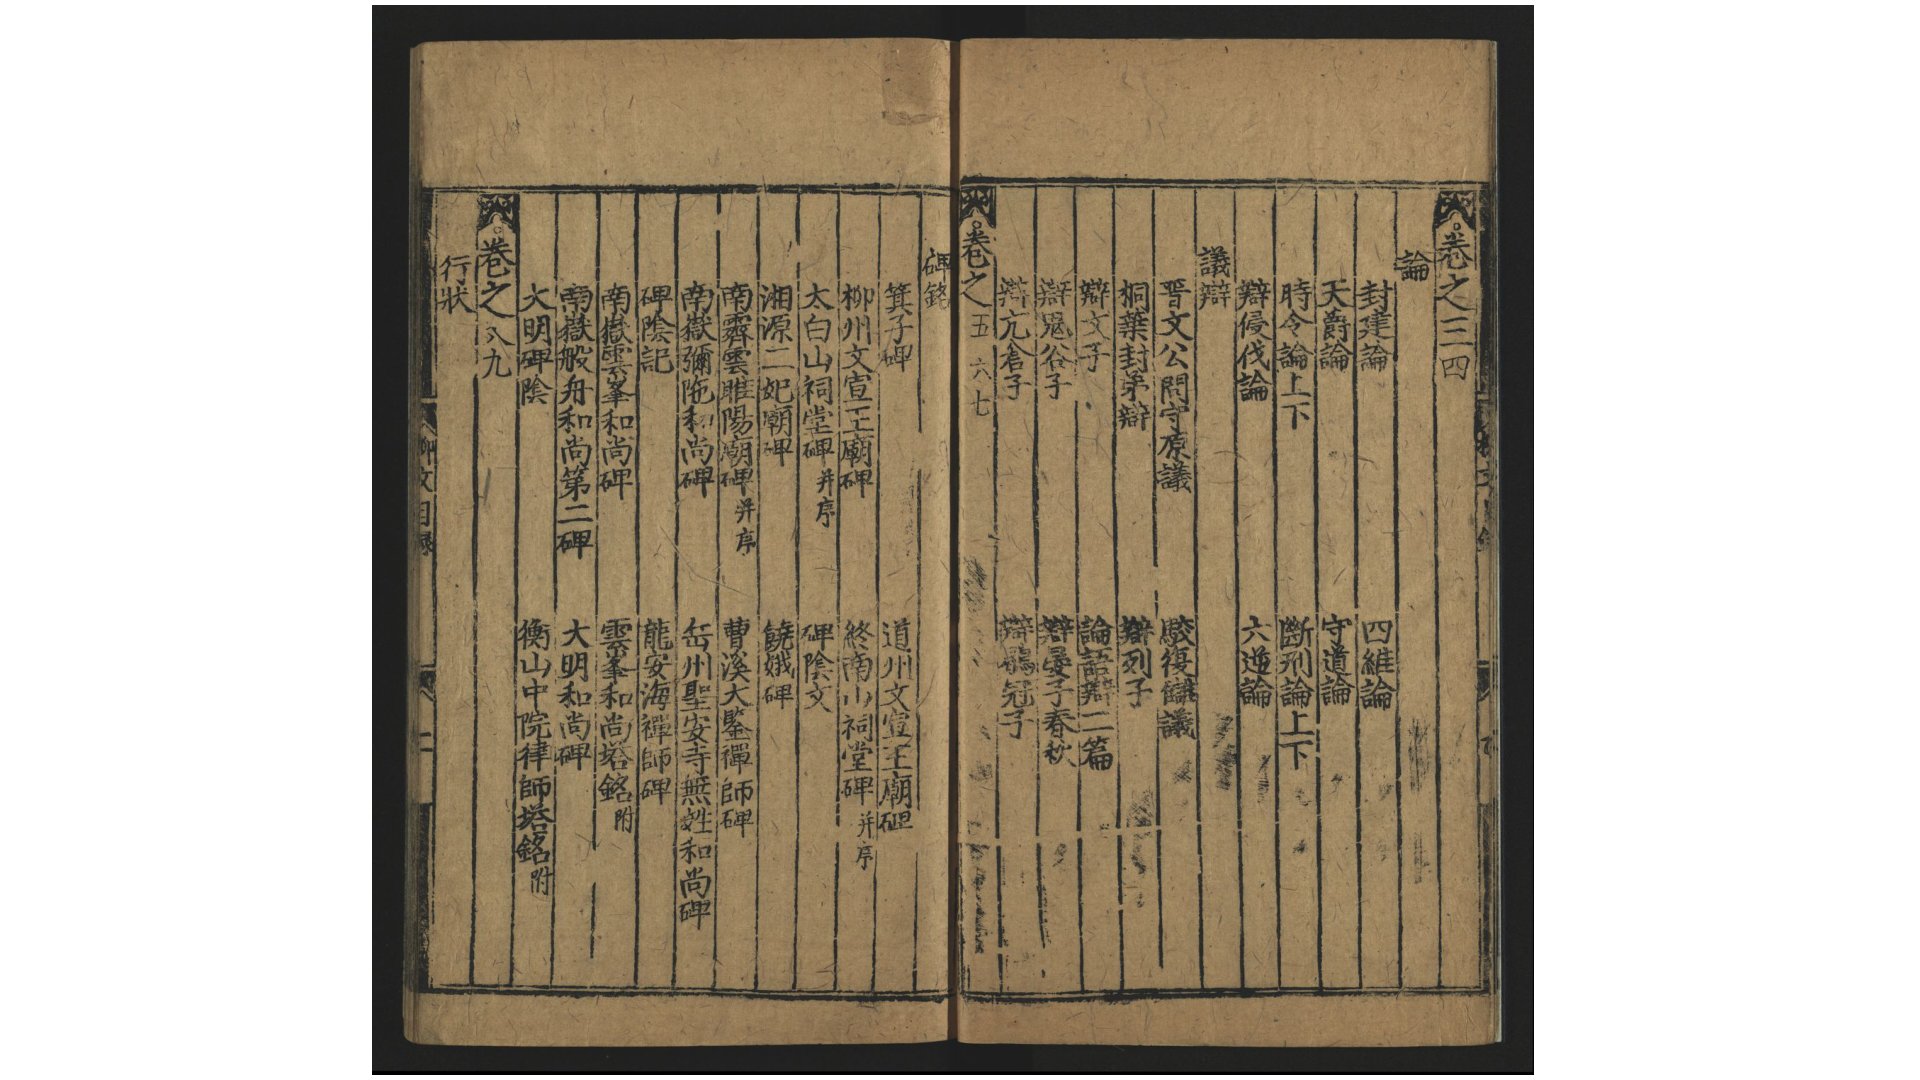 卷之三四
論
封建論 四維論
天爵論 守道論
時令論上下 斷刑論上下
辯侵伐論 六逆論
議辯
晋文公問守原議 駮復讎議
桐葉封弟辯 辯列子
辯文子 論語辯二篇
辯鬼谷子 辯晏子春秋
辯亢倉子 辯鶡冠子
卷之五六七
碑銘
箕子碑 道州文宣王廟碑
柳州文宣王廟碑 終南山祠堂碑并序
太白山祠堂碑并序 碑陰文
湘源二妃廟碑 饒娥碑
南霽雲睢陽廟碑并序 曹溪大鑒禪師碑
南嶽彌陁和尚碑 岳州聖安寺無姓和尚碑
碑陰記 龍安海禪師碑
南嶽雲峯和尚碑 雲峯和尚塔銘附
南嶽般舟和尚第二碑 大明和尚碑
大明碑陰 衡山中院律師塔銘附
卷之八九
行狀
柳文目録
二